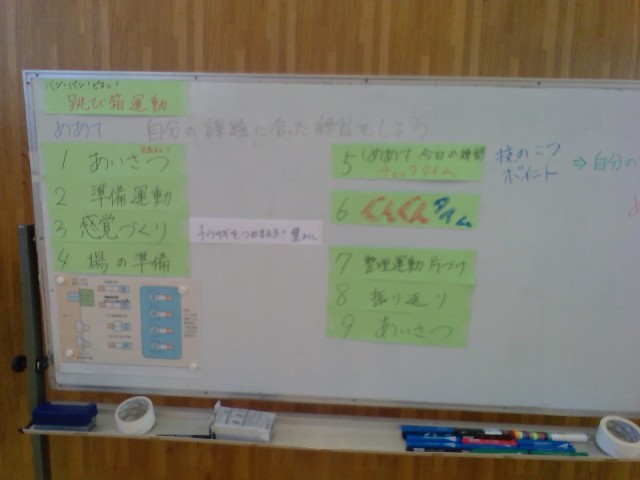 跳び箱運動
めあて 自分の課題に合った練習をしよう
1 あいさつ
2 準備運動
3 感覚づくり
4 場の準備
5 めあて 今日の練習
チェックタイム
技のこつ
ポイント
⇒自分の
6 ぐんぐんタイム
7 整理運動 片づけ
8 振り返り
9 あいさつ